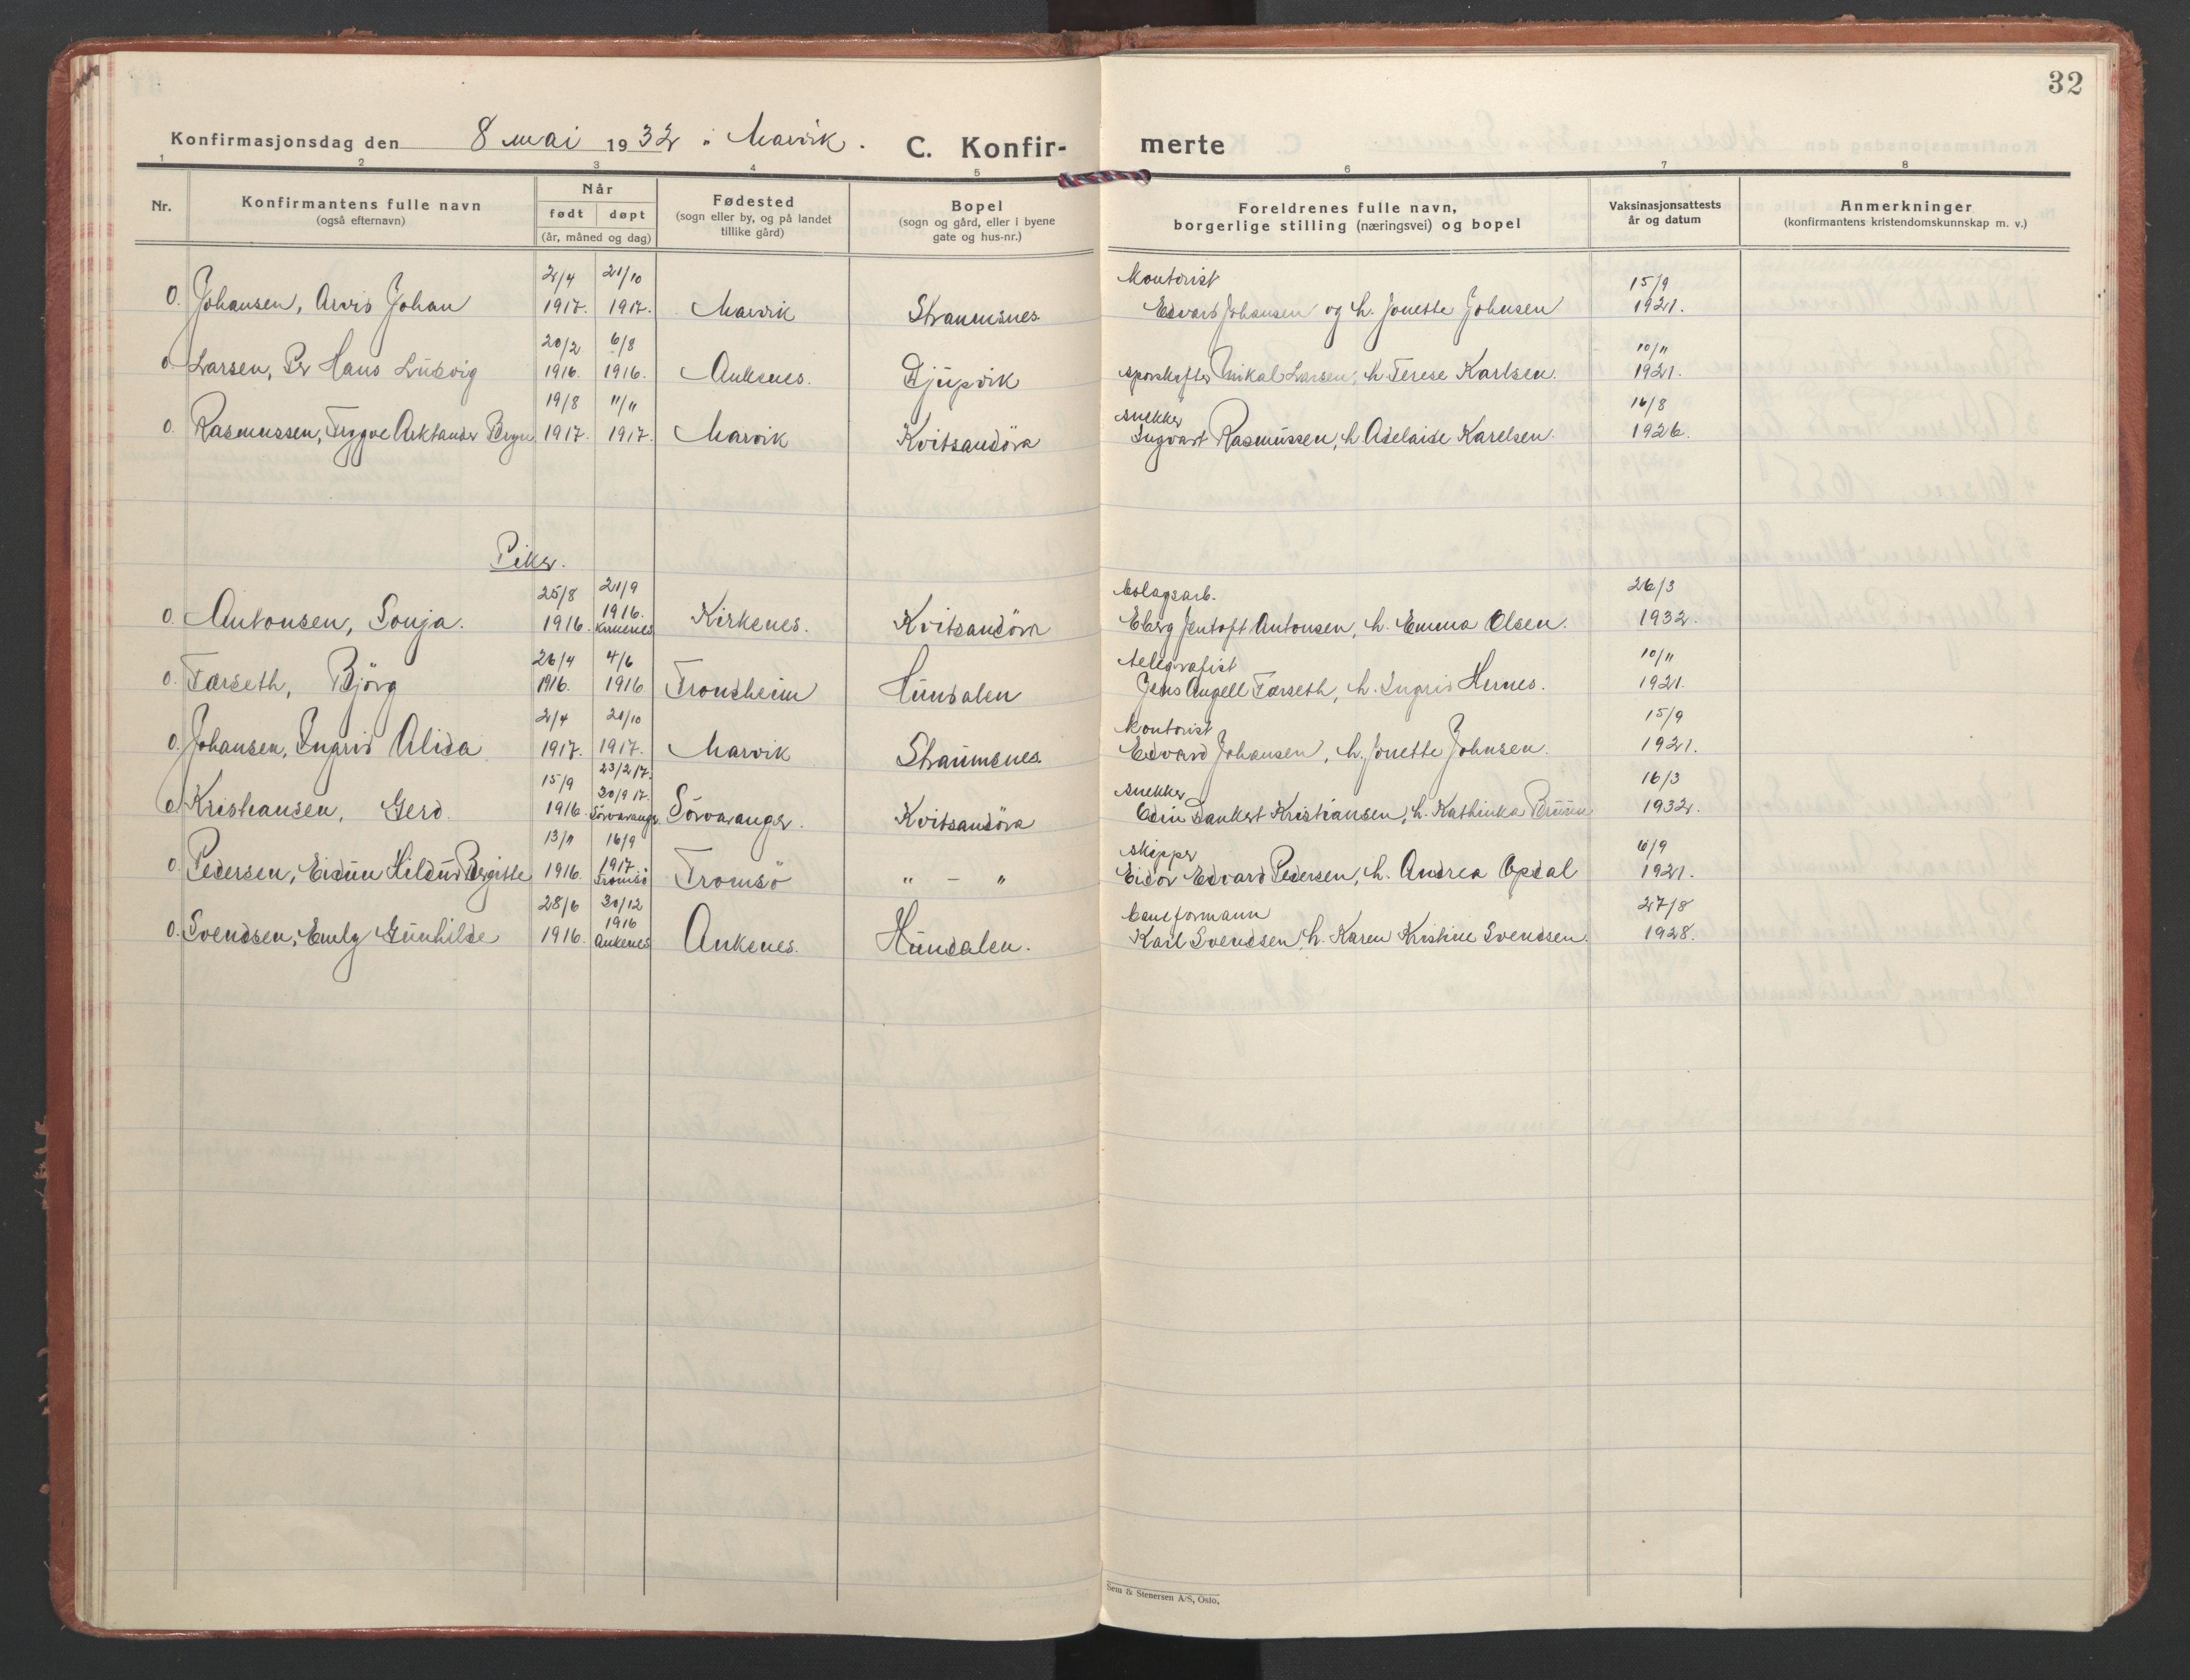 32
Konfirmasjonsdag den 8 mai 1932 i Narvik. C. Konfir- merte
1 2 3 4 5 6 7 8
Nr. Konfirmantens fulle navn (også efternavn) Når født døpt (år, måned og dag) Fødested (sogn eller by, og på landet tillike gård) Bopel (sogn og gård, eller i byene gate og hus-nr.) Foreldrenes fulle navn, borgerlige stilling (næringsvei) og bopel Vaksinasjonsattests år og datum Anmerkninger (konfirmantens kristendomskunnskap m. v.)
2/4 21/10 Kontorist 15/9
0. Johansen, Arvid Johan 1917. 1917. Narvik Straumsnes. Edvard Johansen og h. Jonette Johnsen 1921.
20/2 6/8 10/11
0 Larsen, Per Hans Ludvig 1916. 1916. Ankenes. Djupvik sporskifter Mikal Larsen, h. Terese Karlsen. 1921.
19/8 11/11 snekker 16/8
0. Rasmussen, Tryggve Arktander 1917. 1917. Narvik Kvitsandöra Ingvart Rasmussen, h. Adelaide Karelsen. 1926.
Piker.
25/8 21/9 bolagsarb. 26/3
0. Antonsen, Sonja. 1916. 1916. Kirkenes Kirkenes. Kvitsandöra Eberg Jentoft Antonsen, h. Emma Olsen. 1932.
26/4 4/6 telegrafist 10/11
0. Færseth, Björg 1916. 1916 Trondheim Hundalen Jens Angell Færseth, h. Ingrid Hernes. 1921.
2/4 21/10 Kontorist 15/9
0. Johansen, Ingrid Alida 1917. 1917. Narvik Straumsnes. Edvard Johansen, h. Jonette Johnsen. 1921.
15/9 23/2 17. snekker 16/3
0 Kristiansen, Gerd. 1916. 30/9 17. Sörvaranger. Sörvaranger. Kvitsandöra Odin Dankert Kristiansen, h. Kathinka Bruun 1932.
13/11 16/9 skipper 6/9
0. Pedersen, Eidun Hildur Bergitte 1916. 1917 Tromsö Tromsö " - " Eidor Edvard Pedersen, h. Andrea Opdal 1921.
28/6 30/12 baneformann 27/8
0. Svendsen, Emly Gunhilde 1916. 1916 Ankenes Ankenes. Hundalen. Karl Svendsen, h. Karen Kristine Svendsen. 1928.
Sem & Stenersen A/S, Oslo.